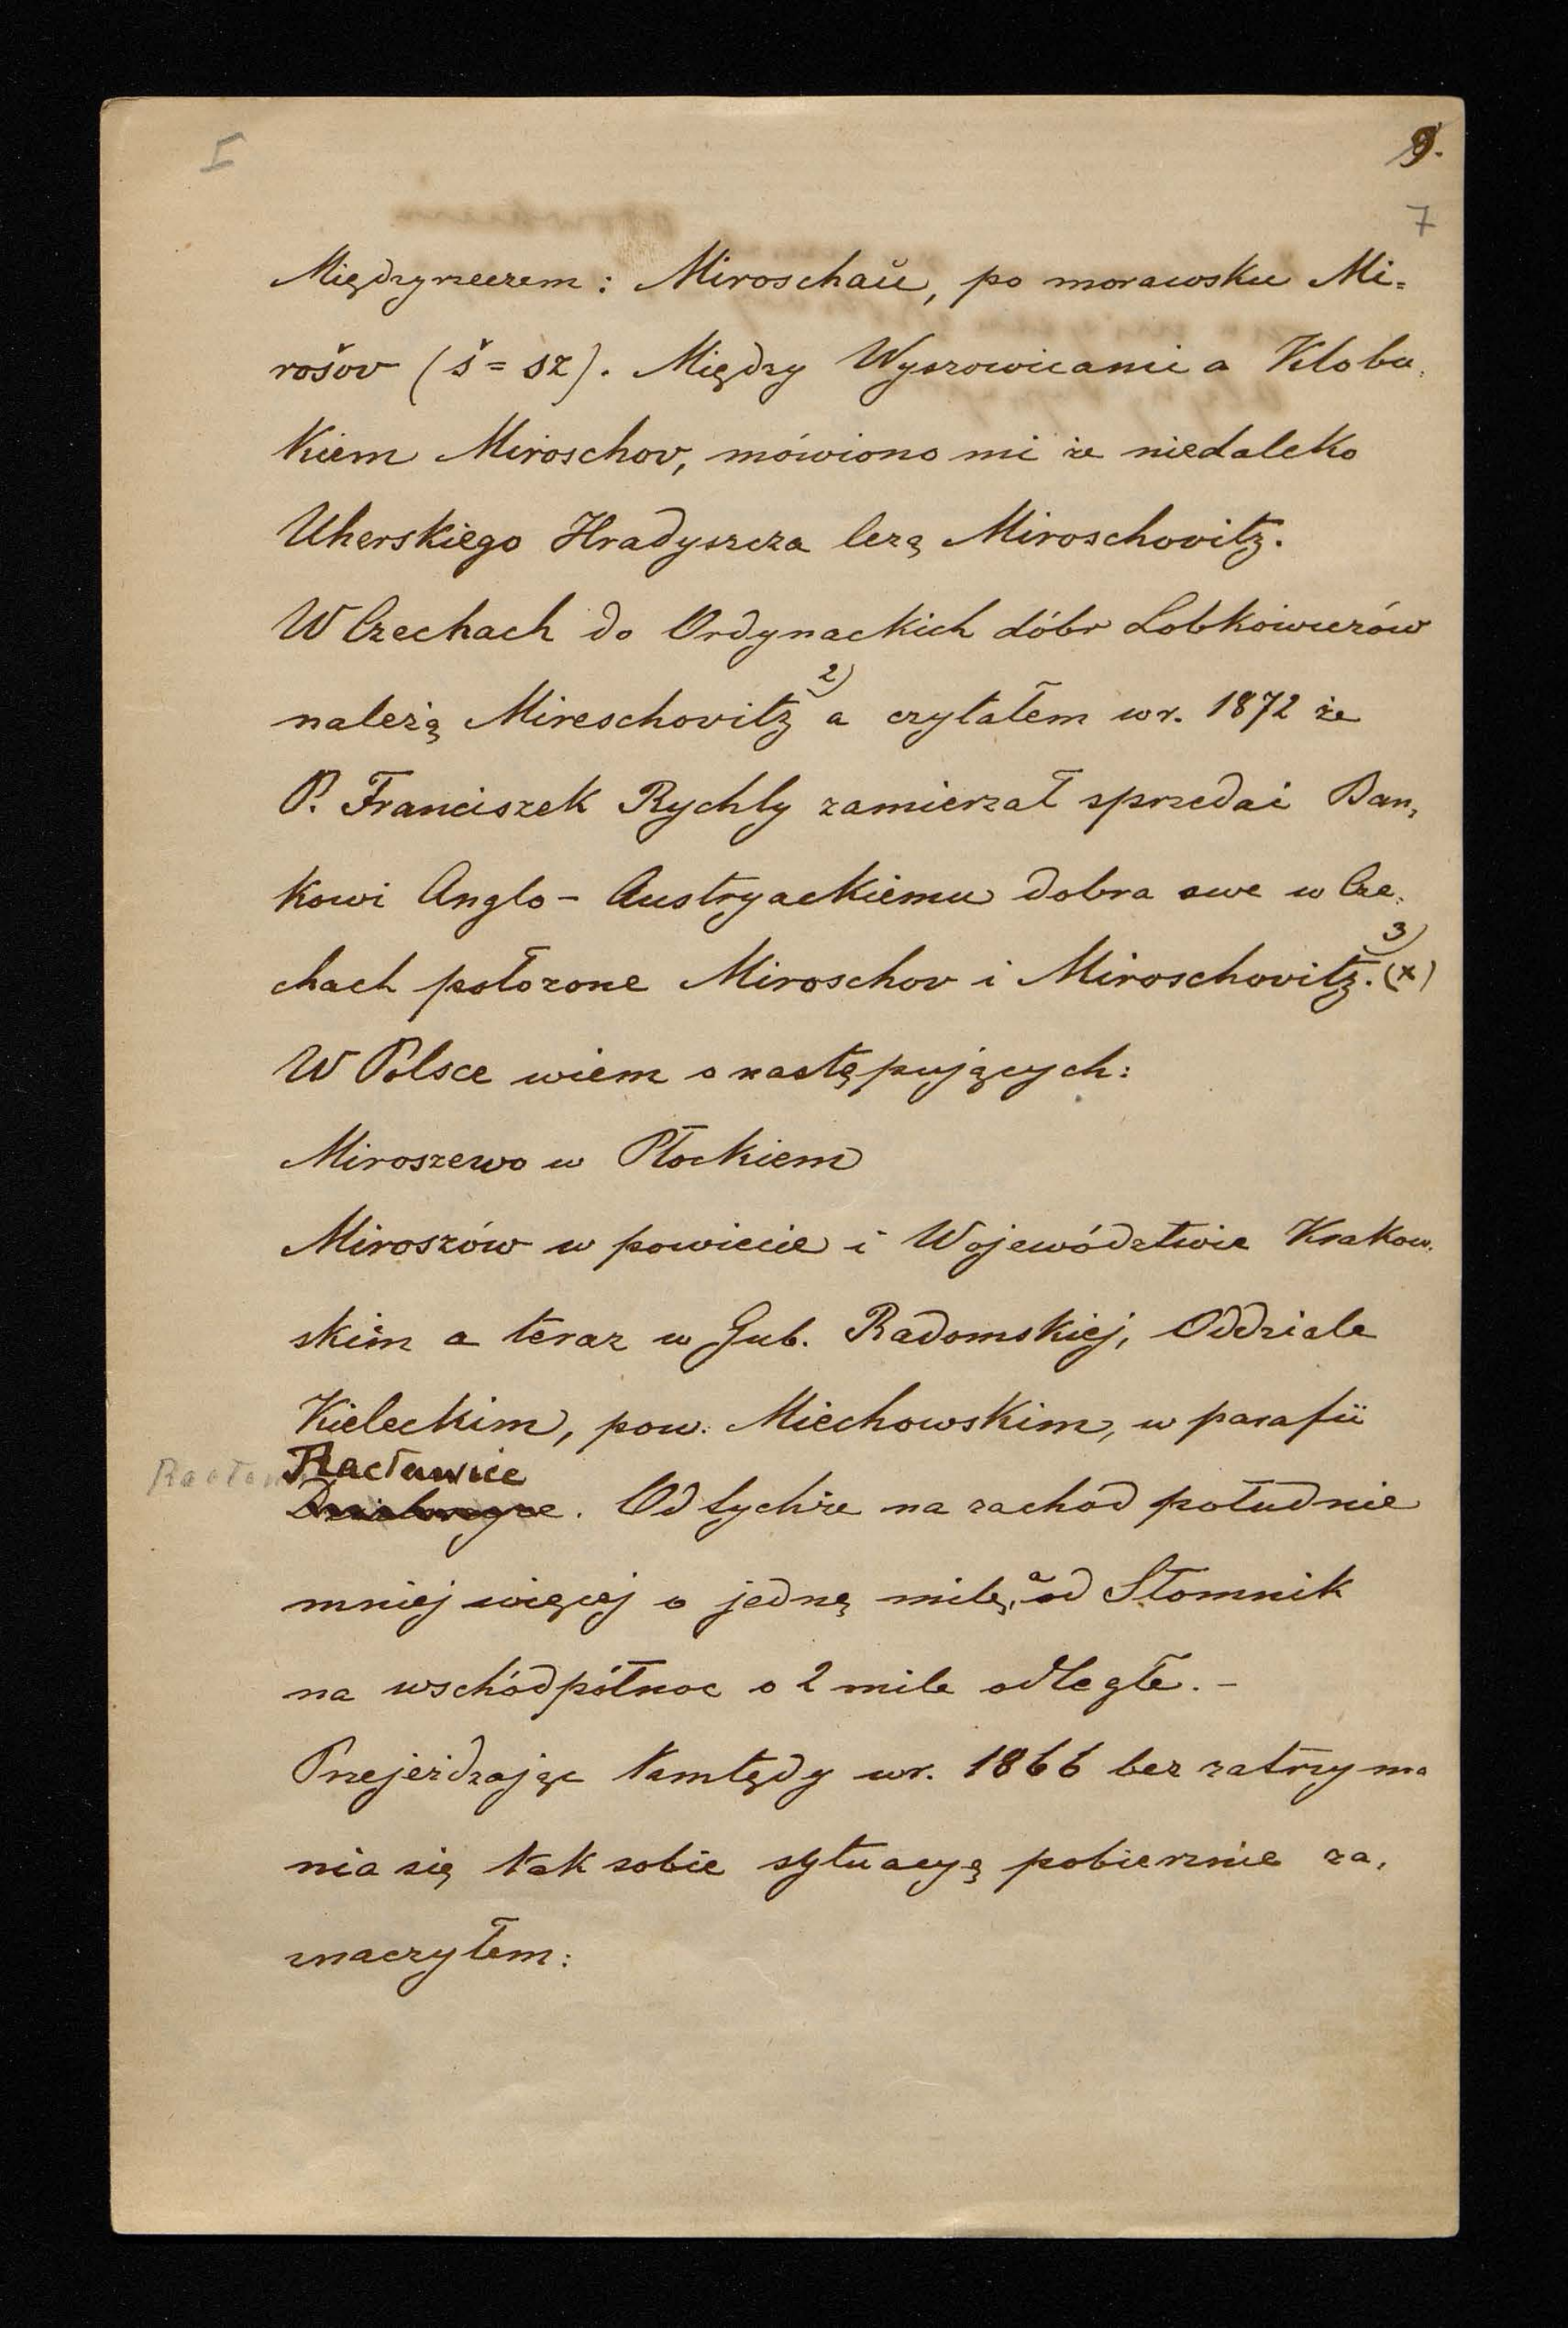 I
9.
7
Międzyrzeczem: Miroschaŭ, po morawsku Mi=
rošov (š = sz). Między Wyszowicami a Klobu,
kiem Miroschov, mówiono mi że niedaleko
Uherskiego Hradyszcza leżą Miroschovitz.
W Czechach do Ordynackich dóbr Lobkowiczów
należą Mireschovitz 2) a czytałem w r. 1872 że
P. Franciszek Rychly zamierzał sprzedać Ban,
kowi Anglo-Austryackiemu dobra swe w Cze,
chach położone Miroschov i Miroschovitz. 3) (x)
W Polsce wiem o następujących:
Miroszewo w Płockiem
Miroszów w powiecie i Województwie Krakow.
skiem a teraz w Gub. Radomskiej, Oddziale
Kieleckim, pow. Miechowskim, w parafii
Racławice
. Od tychże na zachód południe
mniej więcej o jednę milę, a od Słomnik
na wschód północ o 2 mile odległe. -
Przejeżdzając tamtędy w r. 1866 bez zatrzyma
nia się tak sobie sytuacyę pobieżnie za,
znaczyłem: